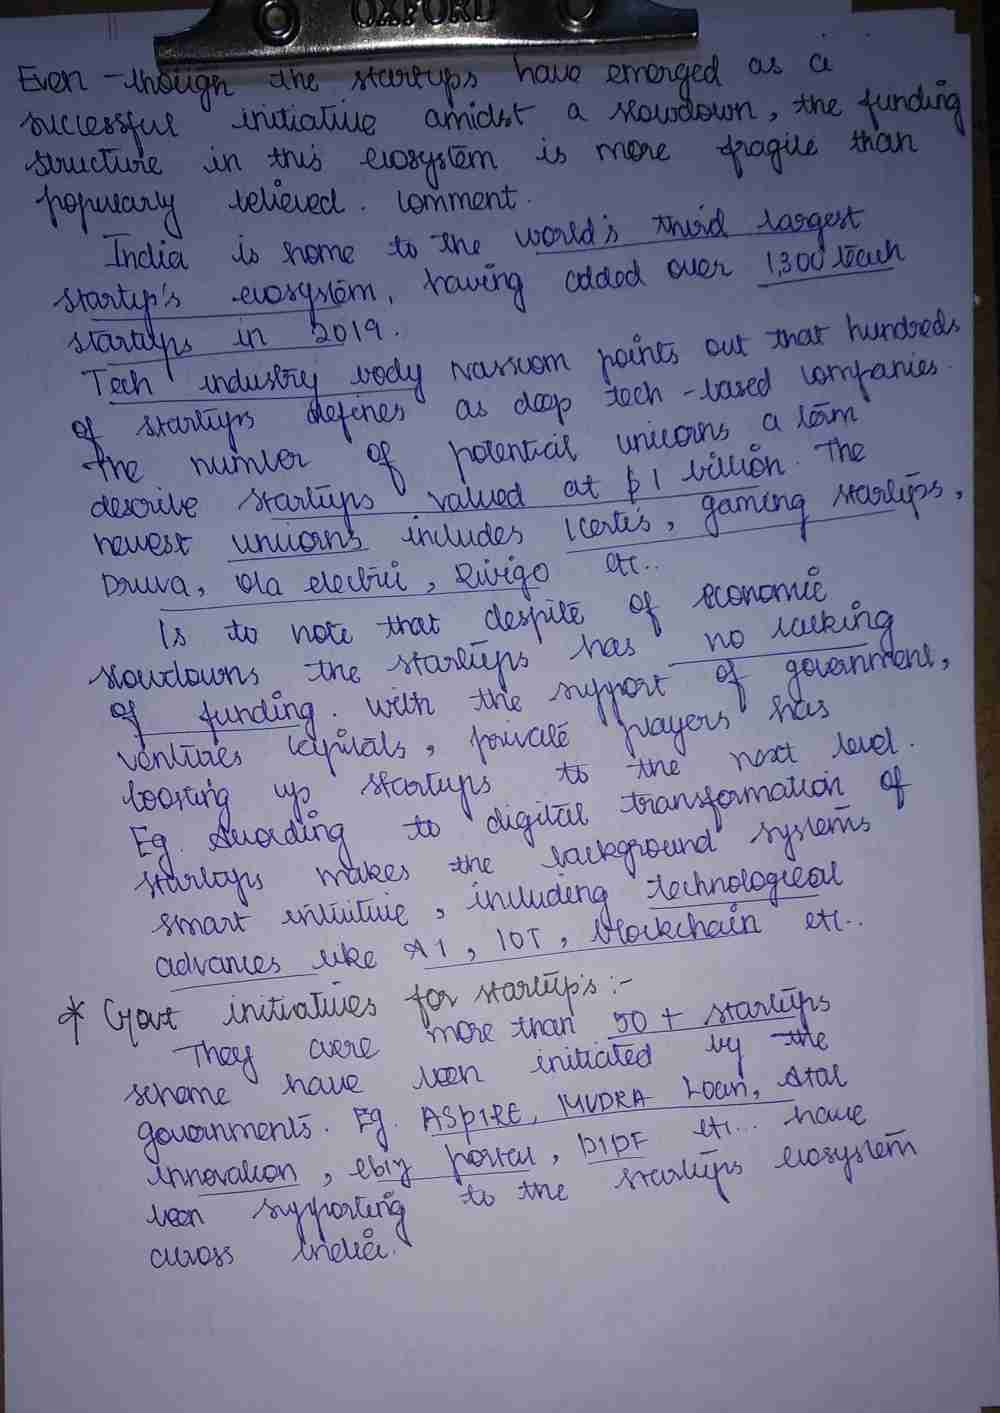 OXFORD
Even though the startups have emerged as a
successful initiative amidst a slowdown, the funding
structure in this ecosystem is more fragile than
popularly believed. Comment.
India is home to the world's third largest
startup's ecosystem, having added over 1,300 tech
startups in 2019.
Tech industry body Nasscom points out that hundreds
of startups defines as deep tech-based companies.
The number of potential unicorns a term
describe startups valued at $1 billion. The
newest unicorns includes Icertis, gaming startups,
Druva, Ola electric, Rivigo etc..
Is to note that despite of economic
slowdowns the startups has no lacking
of funding. With the support of government,
ventures capitals, private players has
boosting up startups to the next level.
Eg. According to digital transformation of
startups makes the background systems
smart intuitive, including technological
advances like AI, IOT, blockchain etc..
* Govt initiatives for startup's:-
They are more than 50+ startups
scheme have been initiated by the
governments. Eg. ASPIRE, MUDRA Loan, Atal
innovation, ebiz portal, DIPF etc... have
been supporting to the startups ecosystem
across India.